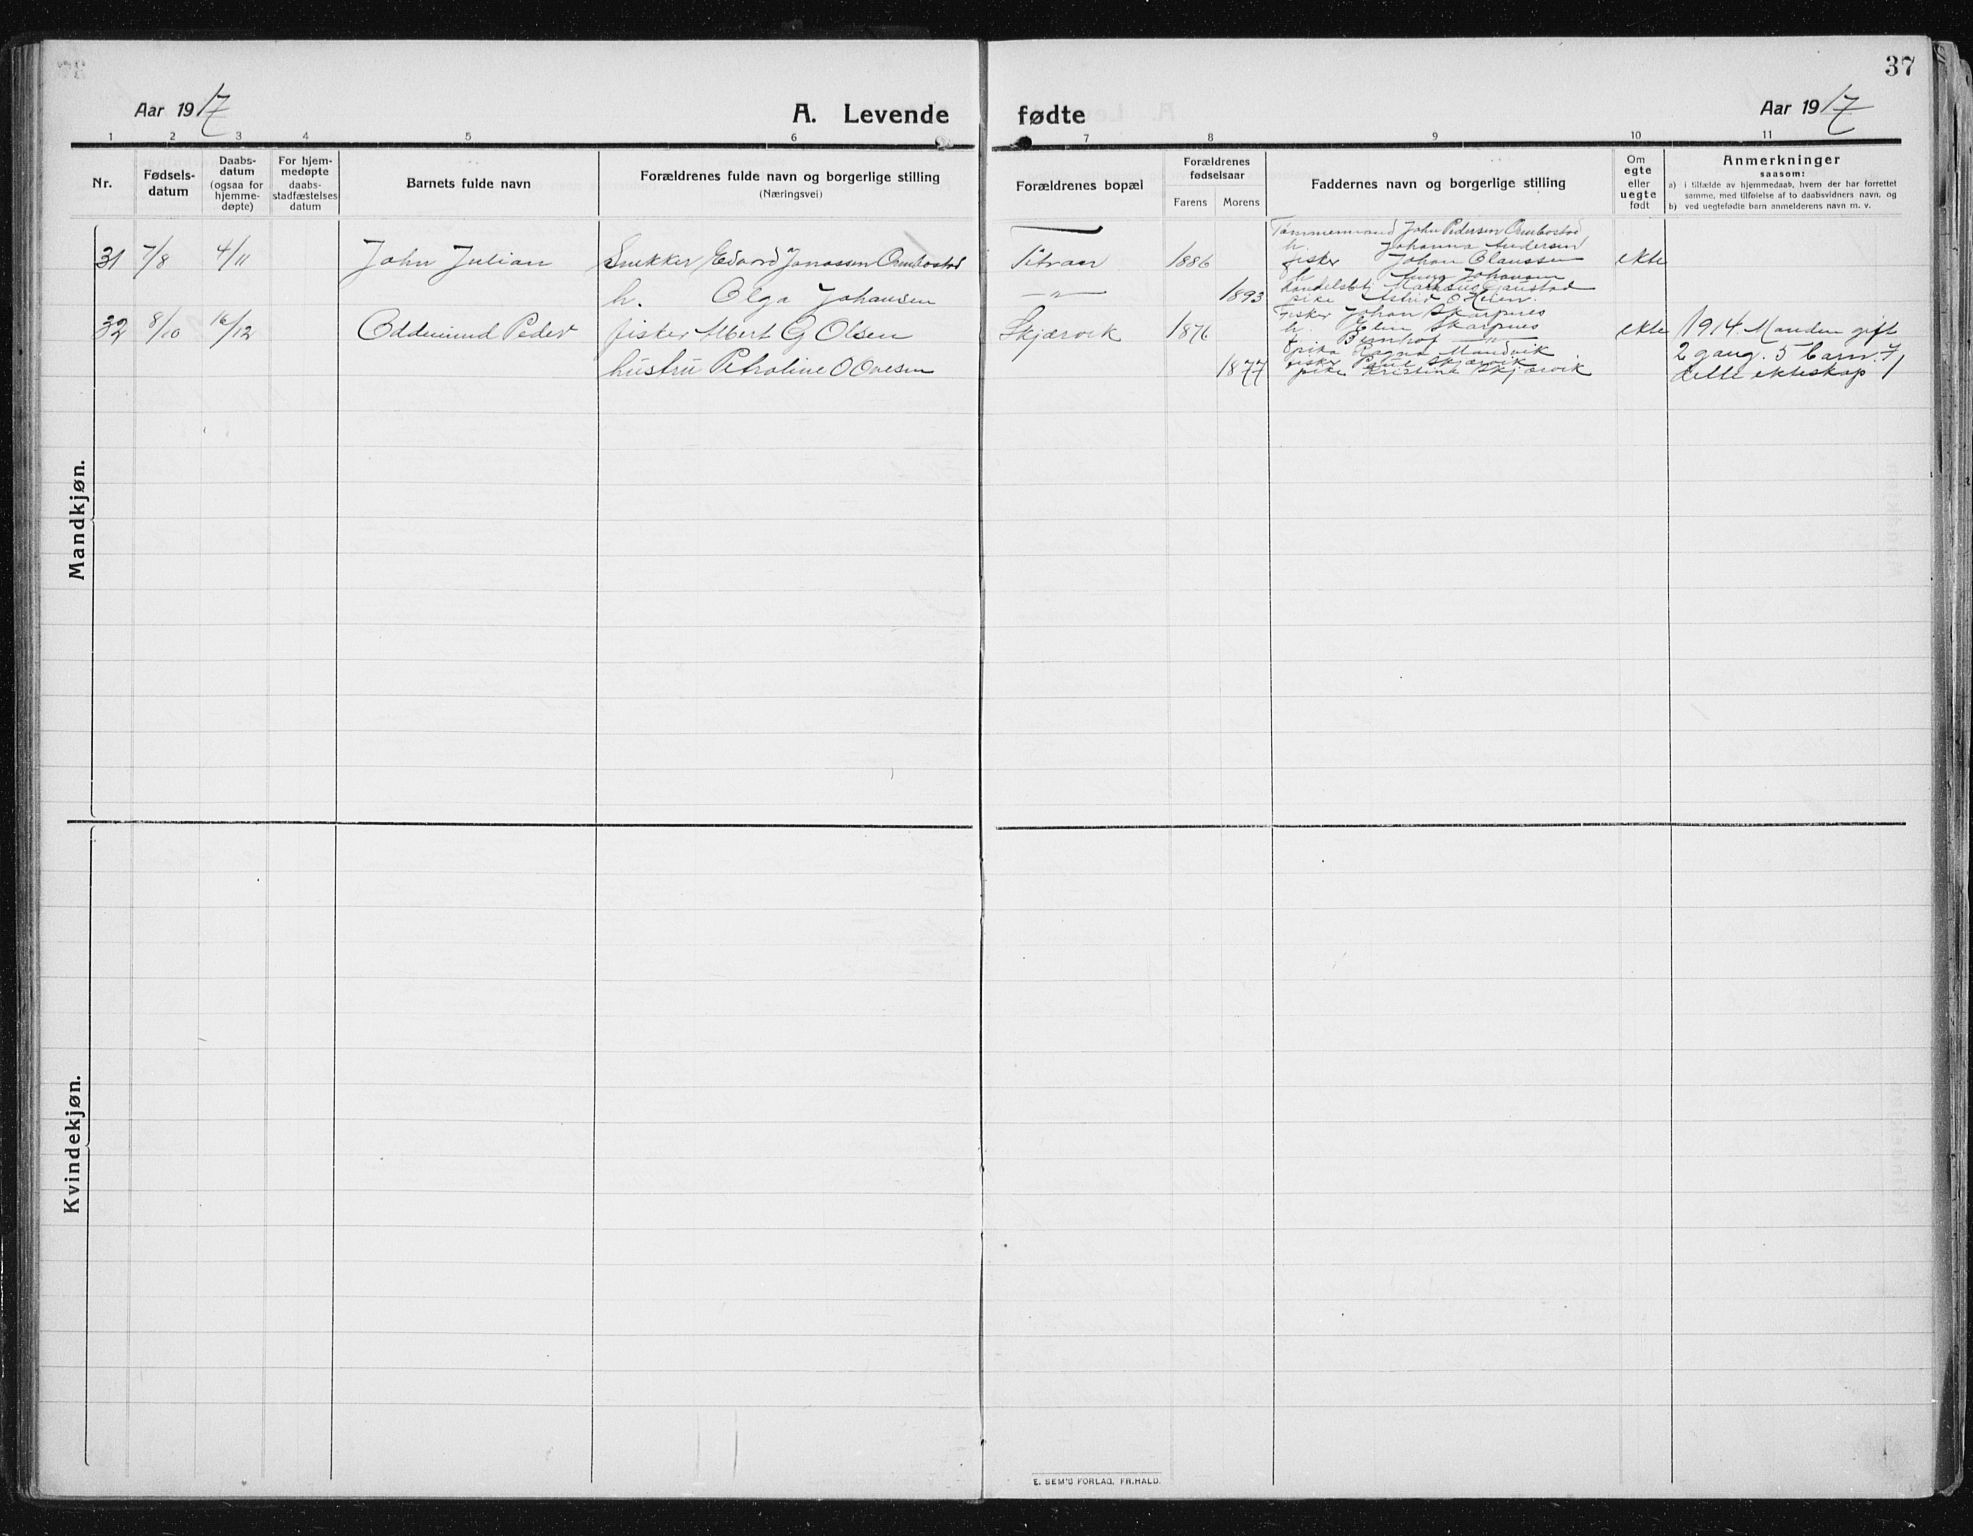 37
Aar 1917
A. Levende
fødte
Aar 1917
1 2 3 4 5 6 7 8 9 10 11
Nr.
Fødsels-
datum
Daabs-
datum
(ogsaa for
hjemme-
døpte)
For hjem-
medøpte
daabs-
stadfæstelses
datum
Barnets fulde navn
Forældrenes fulde navn og borgerlige stilling
(Næringsvei)
Forældrenes bopæl
Forældrenes
fødselsaar
Farens Morens
Faddernes navn og borgerlige stilling
Om
egte
eller
uegte
født
Anmerkninger
saasom:
a) i tilfælde av hjemmedaab, hvem der har forrettet
samme, med tilføielse af to daabsvidners navn, og
b) ved uegtefødte barn anmelderens navn m. v.
Mandkjøn.
31 7/8 4/11 John Julian Snekker Edvard Jonassen Ombostad Titran 1886 ekte
h. Olga Johansen —„— 1893
Tømmermand John Pedersen Ombostad
h. Johanna Andersen
fisker Johan Claussen
h. Anna Johansen
handelsbtj Markus Gaustad
pike Astrid O Heien.
32 8/10 16/12 Oddmund Peder fisker Albert G Olsen Skjærvik 1876 ekte
hustru Petroline O Ovesen 1877
Fisker Johan Skarpnes
h. Elen Skarpnes
—„—
pike Ragna Mandvik
fisker Paul Skjærvik
pike Kristine Skjærvik
1914. Manden gift
2 gang. 5 barn i
dette ekteskap
Kvindekjøn.
E. SEM'S FORLAG, FR.HALD.